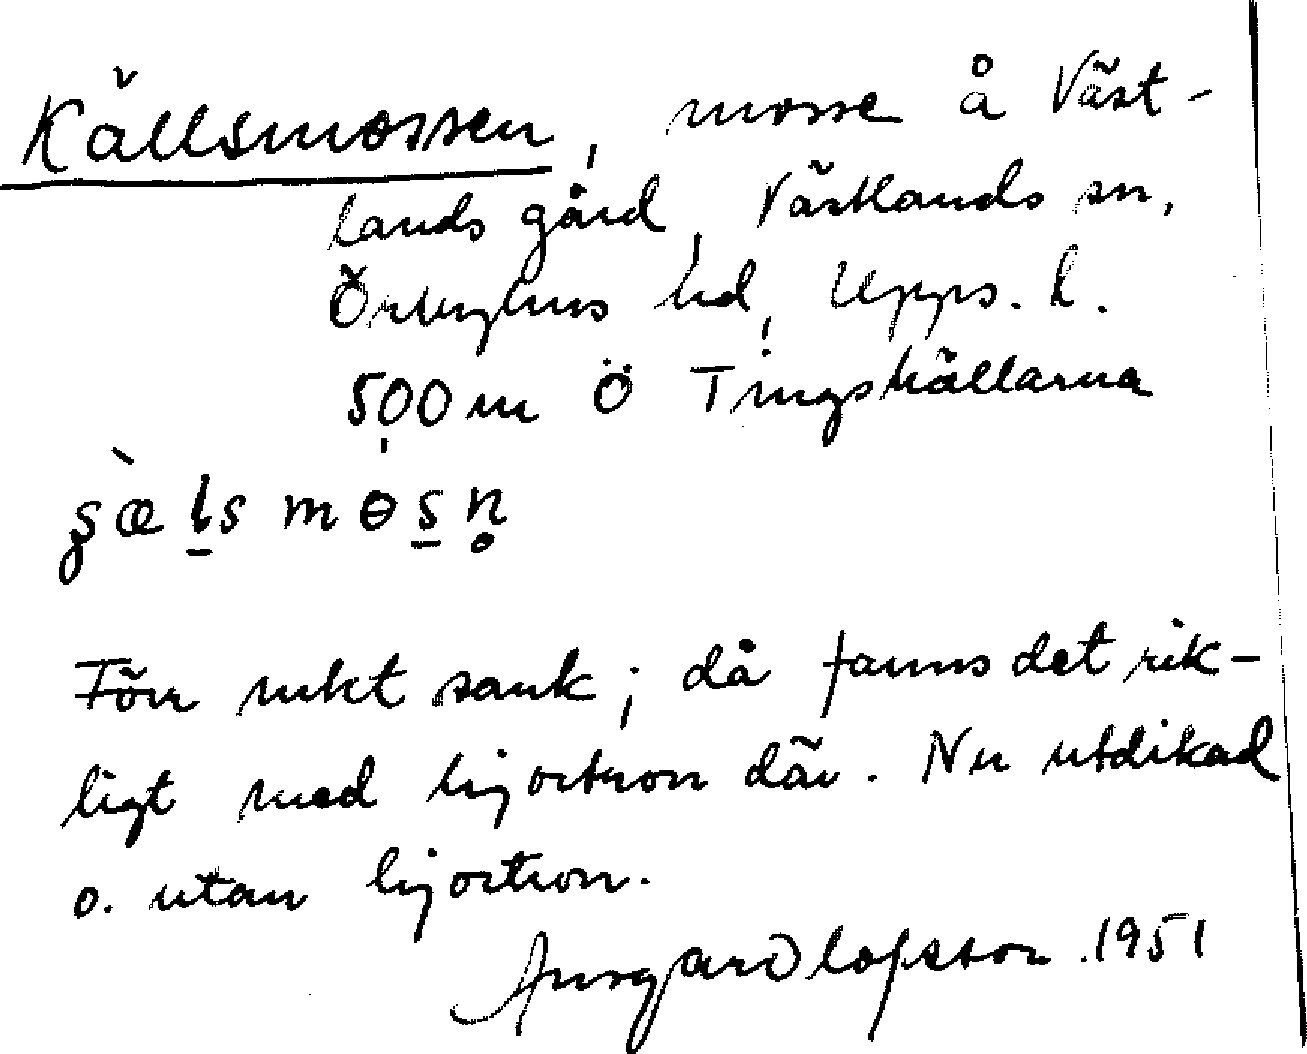 Källsmossen, mosse å Väst-
lands gård, Västlands sn,
Örbyhus hd, Upps. l.
500 m Ö Tingshällarna
Förr mkt sank; då fanns det rik-
ligt med hjortron där. Nu utdikad
o. utan hjortron.
Olofsson 1951